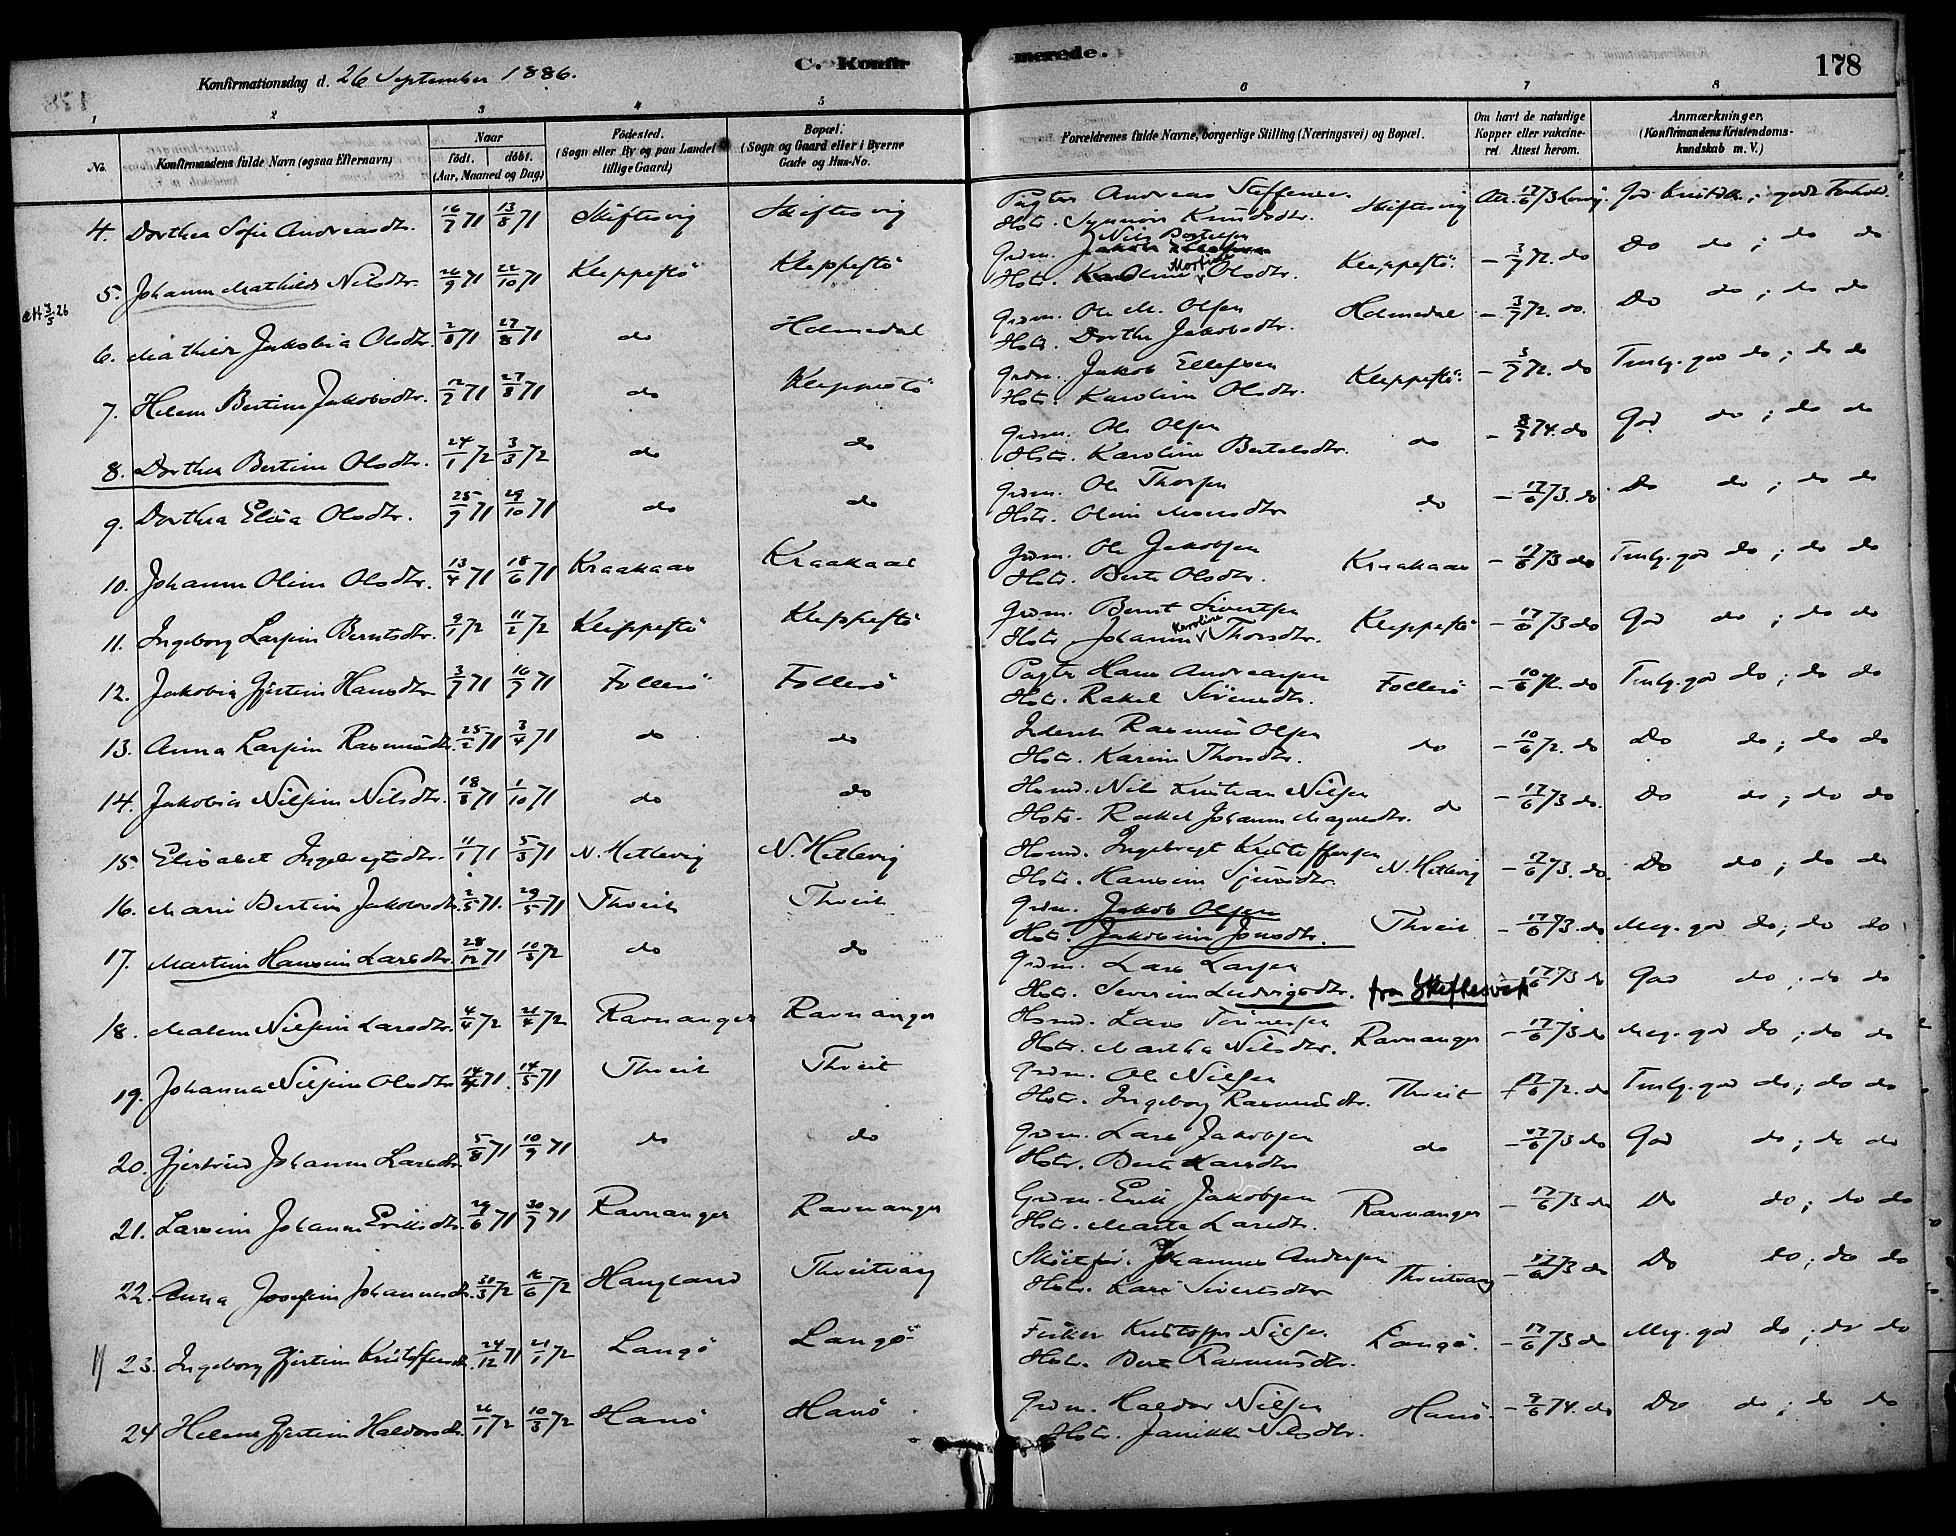 C. Konfirmerede.
178
Konfirmationsdag d. 26 September 1886.
1 2 3 4 5 6 7 8
No. Konfirmandens fulde Navn (ogsaa Efternavn) Naar født. døbt. (Aar, Maaned og Dag) Fødested. (Sogn eller By og paa Landet tillige Gaard) Bopæl. (Sogn og Gaard eller i Byerne Gade og Hus-No. Forældrenes fulde Navne, borgerlige Stilling (Næringsvei) og Bopæl. Om havt de naturlige Kopper eller vakcineret. Attest herom. Anmærkninger. (Konfirmandens Kristendomskundskab m. V.)
4. Dorthea Sofie Andreasdtr. 16/7 71 13/8 71 Skiftesvig Skiftesvig Pagter Andreas Steffensen Hstr. Synnøve Knudsdtr. Skiftesvig Att. 17/6 73
5. Johanne Mathilde Nilsdtr. 26/9 71 22/10 71 Kleppestø Kleppestø Grdm. Nils Bertelsen Hstr. Martine Olsdtr. Kleppestø. - 3/7 72. do Do do ; do do
6. Mathilde Jakobia Olsdtr. 2/8 71 27/8 71 do Holmedal Grdm. Ole M. Olsen Hstr. Dorthe Jakobsdtr. Holmedal - 3/7 72. do. Do do ; do do
7. Helene Bertine Jakobsdtr. 12/7 71 27/8 71 do Kleppestø Grdm. Jakob Ellefsen Hstr. Karoline Olsdtr. Kleppestø. - 3/7 72. do Tmlg. god do ; do do
8. Dorthea Bertine Olsdtr. 24/1 72 3/3 72 do do Grdm. Ole Olsen Hstr. Karoline Bertelsdtr. do - 8/7 74. do God do ; do do
9. Dorthea Elisa Olsdtr. 25/9 71 29/10 71 do do Grdm. Ole Thorsen Hstr. Oline Monsdtr do - 17/6 73. do Do do ; do do
10. Johanne Oline Olsdtr. 13/4 71 18/6 71 Kraakaas Kraakaas Grdm. Ole Jakobsen Hstr. Berte Olsdtr. Kraakaas - 17/6 73 do Tmlg. god do ; do do
11. Ingeborg Larsine Berntsdtr. 9/1 72 11/2 72 Kleppestø Kleppestø Grdm. Bernt Sivertsen Hstr Johanne Karoline Thorsdtr. Kleppestø - 17/6 73 do God do ; do do
12. Jakobia Gjertine Hansdtr 3/7 71 16/7 71 Follesø Follesø Pagter Hans Andreassen Hstr. Rakel Sørensdtr. Follesø - 10/6 72. do Tmlg. god do ; do do
13. Anna Larsine Rasmusdtr. 25/2 71 3/4 71 do do Inderst Rasmus Olsen Hstr. Karine Thorsdtr. do - 10/6 72. do Do do ; do do
14. Jakobia Nilsine Nilsdtr. 18/8 71 1/10 71 do do Husmd. Nils Kristian Nilsen Hstr. Rakel Johanne Magnesdtr. do - 17/6 73 do. Do do ; do do
15 Elisabet Ingebregtsdtr. 11/1 71 5/3 71 N. Hetlevig N. Hetlevig Husmd. Ingebregt Kristoffersen Hstr. Hansine Sjursdtr. N. Hetlevig - 17/6 73. do. Do do ; do do
16. Marie Bertine Jakobsdtr. 2/5 71. 29/5 71 Thveit Thveit Grdm. Jakob Olsen Hstr. Jakobine Jonsdtr. Thveit - 17/6 73. do Meg. god do ; do do
17. Martine Hansine Larsdtr. 28/12 71 10/3 72 do do Grdm. Lars Larsen Hstr. Severine Ludvigsdtr. fra Skiftesvik - 17/6 73 do God do ; do do
18. Malene Nilsine Larsdtr. 4/4 72 21/4 72 Ravnanger Ravnanger Husmd. Lars Tønnesen Hstr. Martha Nilsdtr. Ravnanger - 17/6 73 do Meg. god do ; do do
19. Johanna Nilsine Olsdtr. 14/4 71. 14/5 71 Thveit Thveit Grdm. Ole Nilsen Hstr. Ingeborg Rasmusdtr. Thveit - 17/6 72. do Tmlg. god do ; do do
20. Gjertrud Johanne Larsdtr. 5/8 71 10/9 71 do do Grdm. Lars Jakobsen Hstr. Berte Larsdtr do - 17/6 73 do God do ; do do
21. Larsine Johanne Eriksdtr. 29/6 71 30/7 71 Ravnanger Ravnanger Grdm. Erik Jakobsen Hstr. Marte Larsdtr. Ravnanger - 17/6 73 do Do do ; do do
22. Anna Josefine Johannesdtr. 30/3 72 16/6 72 Haugland Thveitvaag Johannes Andersen Hstr. Kari Sivertsdtr Thveitvaag - 17/6 73 do Do do ; do do
23. Ingeborg Gjertine Kristoffersdtr. 24/12 71 21/1 72 Langø Langø Fisker Kristoffer Nilsen Hstr. Berte Rasmusdtr. Langø. - 17/6 73 do Meg. god do ; do do
24 Helene Gjertine Haldorsdtr. 26/1 72 10/3 72 Hanø Hanø. Grdm. Haldor Nilsen Hstr. Jannikke Nilsdtr. Hanø. - 9/6 74. do Do do ; do do